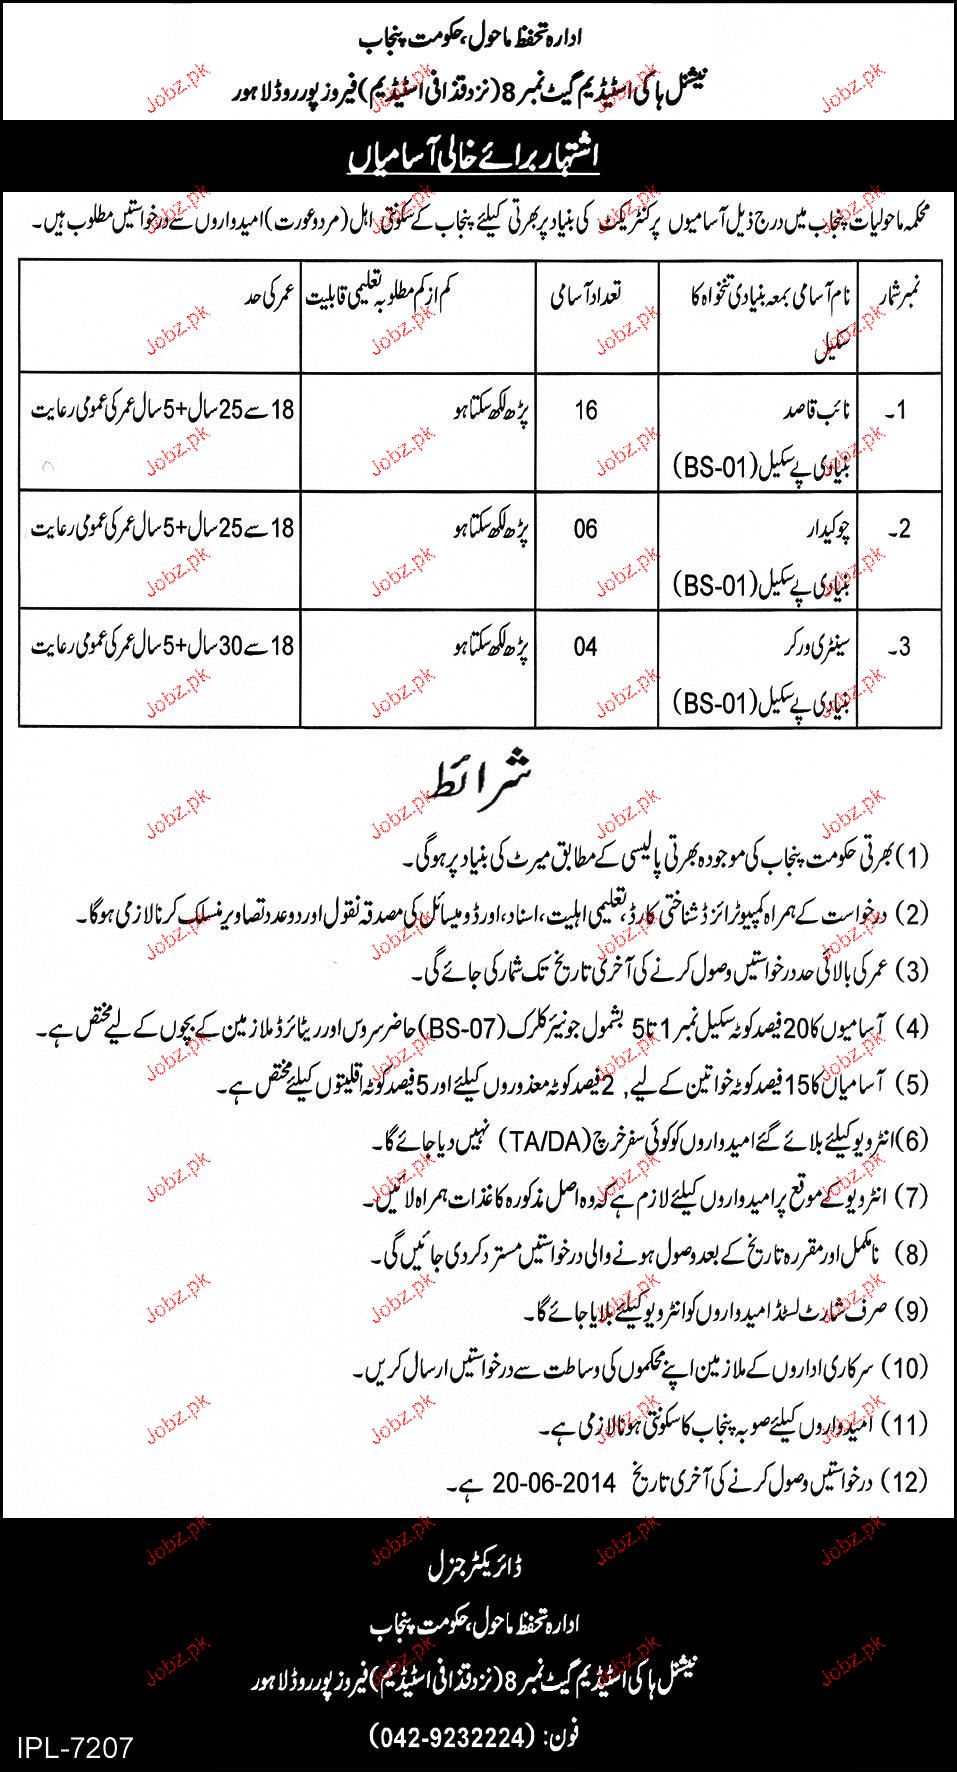 ادارہ تحفظ ماحول، حکومت پنجاب
نیشنل ہاکی اسٹیڈیم گیٹ نمبر 8 (نزد قذافی اسٹیڈیم) فیروز پور روڈ لاہور
اشتہار برائے خالی آسامیاں
محکمہ ماحولیات پنجاب میں درج ذیل آسامیوں پر کنٹریکٹ کی بنیاد پر بھرتی کیلئے پنجاب کے سکونتی اہل (مرد و عورت) امیدواروں سے درخواستیں مطلوب ہیں۔
نمبر شمار | نام آسامی بمعہ بنیادی تنخواہ کا سکیل | تعداد آسامی | کم از کم مطلوبہ تعلیمی قابلیت | عمر کی حد
1۔ | نائب قاصد بنیادی پے سکیل (BS-01) | 16 | پڑھ لکھ سکتا ہو | 18 سے 25 سال + 5 سال عمر کی عمومی رعایت
2۔ | چوکیدار بنیادی پے سکیل (BS-01) | 06 | پڑھ لکھ سکتا ہو | 18 سے 25 سال + 5 سال عمر کی عمومی رعایت
3۔ | سینٹری ورکر بنیادی پے سکیل (BS-01) | 04 | پڑھ لکھ سکتا ہو | 18 سے 30 سال + 5 سال عمر کی عمومی رعایت
شرائط
(1) بھرتی حکومت پنجاب کی موجودہ بھرتی پالیسی کے مطابق میرٹ کی بنیاد پر ہوگی۔
(2) درخواست کے ہمراہ کمپیوٹرائزڈ شناختی کارڈ، تعلیمی اہلیت، اسناد، اور ڈومیسائل کی مصدقہ نقول اور دو عدد تصاویر منسلک کرنا لازمی ہوگا۔
(3) عمر کی بالائی حد درخواستیں وصول کرنے کی آخری تاریخ تک شمار کی جائے گی۔
(4) آسامیوں کا 20 فیصد کوٹہ سکیل نمبر 1 تا 5 بشمول جونیئر کلرک (BS-07) حاضر سروس اور ریٹائرڈ ملازمین کے بچوں کے لیے مختص ہے۔
(5) آسامیاں کا 15 فیصد کوٹہ خواتین کے لیے، 2 فیصد کوٹہ معذوروں کیلئے اور 5 فیصد کوٹہ اقلیتوں کیلئے مختص ہے۔
(6) انٹرویو کیلئے بلائے گئے امیدواروں کو کوئی سفر خرچ (TA/DA) نہیں دیا جائے گا۔
(7) انٹرویو کے موقع پر امیدواروں کیلئے لازم ہے کہ وہ اصل مذکورہ کاغذات ہمراہ لائیں۔
(8) نامکمل اور مقررہ تاریخ کے بعد وصول ہونے والی درخواستیں مسترد کر دی جائیں گی۔
(9) صرف شارٹ لسٹڈ امیدواروں کو انٹرویو کیلئے بلایا جائے گا۔
(10) سرکاری اداروں کے ملازمین اپنے محکموں کی وساطت سے درخواستیں ارسال کریں۔
(11) امیدواروں کیلئے صوبہ پنجاب کا سکونتی ہونا لازمی ہے۔
(12) درخواستیں وصول کرنے کی آخری تاریخ 20-06-2014 ہے۔
ڈائریکٹر جنرل
ادارہ تحفظ ماحول، حکومت پنجاب
نیشنل ہاکی اسٹیڈیم گیٹ نمبر 8 (نزد قذافی اسٹیڈیم) فیروز پور روڈ لاہور
فون: (042-9232224)
IPL-7207
Jobz.pk